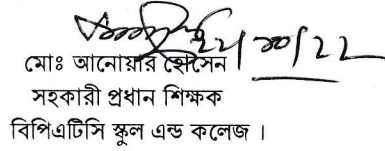 মোঃ আনোয়ার হোসেন
সহকারী প্রধান শিক্ষক
বিপিএটিসি স্কুল এন্ড কলেজ।